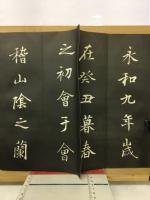 永和九年歲
在癸丑暮春
之初會于會
稽山陰之蘭